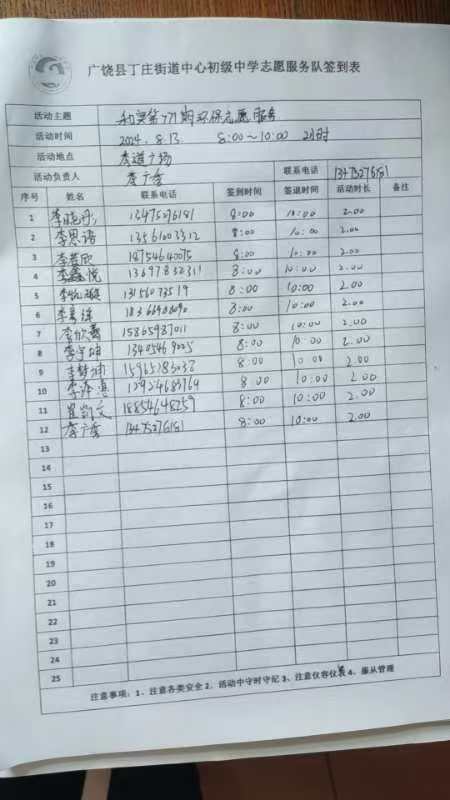 广饶县丁庄街道中心初级中学志愿服务队签到表
活动主题 期环保志愿服务
活动时间 2024.8.13. 8:00~10:00 2小时
活动地点 广场
活动负责人 李广香 联系电话 13475276181
序号 姓名 联系电话 签到时间 签退时间 活动时长 备注
1 李晓丹 13475276181 8:00 10:00 2.00
2 李思语 13561003312 8:00 10:00 2.00
3 18754640075 8:00 10:00 2.00
4 李鑫悦 13697832311 8:00 10:00 2.00
5 13156073519 8:00 10:00 2.00
6 8:00 10:00 2.00
7 李欣 15865987011 8:00 10:00 2.00
8 李宇 13405469005 8:00 10:00 2.00
9 8:00 10:00 2.00
10 李 8:00 10:00 2.00
11 18854648259 8:00 10:00 2.00
12 李广香 13475276181 8:00 10:00 2.00
13
14
15
16
17
18
19
20
21
22
23
24
25
注意事项：1、注意各类安全 2、活动中守时守纪 3、注意仪容仪表 4、服从管理